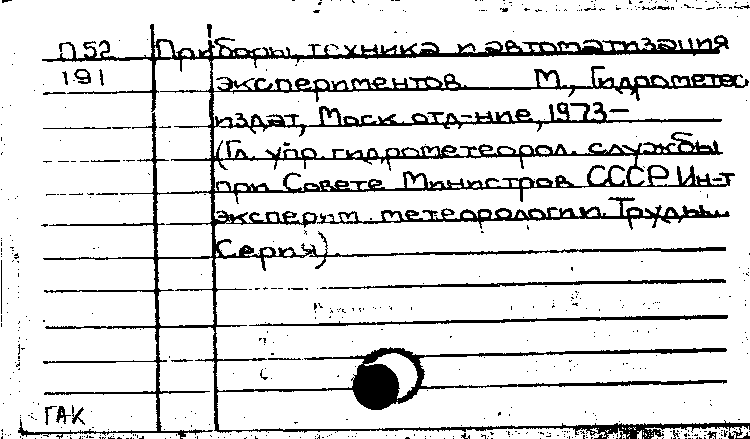 П52 Приборы, техника и автоматизация
191 экспериментов. М., Гидрометео
издат, Моск. отд-ние, 1973—
(Гл. упр. гидрометеорол. службы
при Совете Министров СССР. Ин-т
эксперим. метеорологии. Труды...
Серия).
ГАК